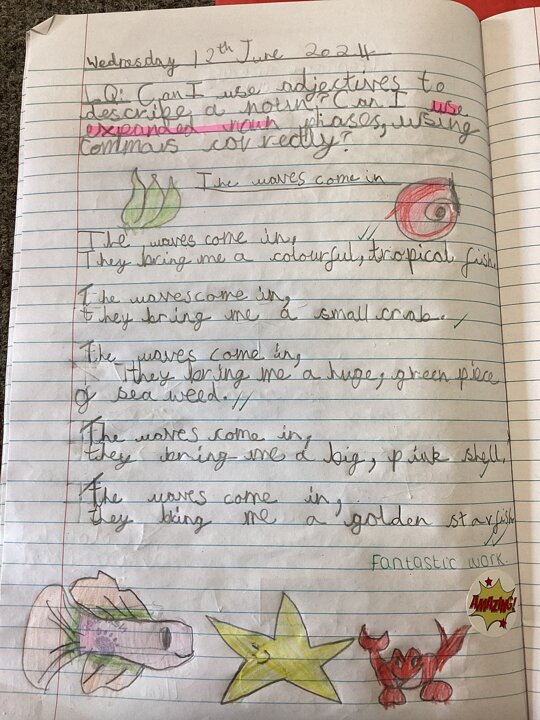 Wednesday 12th June 2024
LQ: Can I use adjectives to
describe a noun? Can I use
expanded noun phases, using
commas correctly?
The waves come in
The waves come in,
They bring me a colourful, tropical fish.
The waves come in,
they bring me a small crab.
The waves come in,
they bring me a huge, green piece
of sea weed.
The waves come in,
they bring me a big, pink shell.
The waves come in,
they bring me a golden starfish
Fantastic work.
AMAZING!